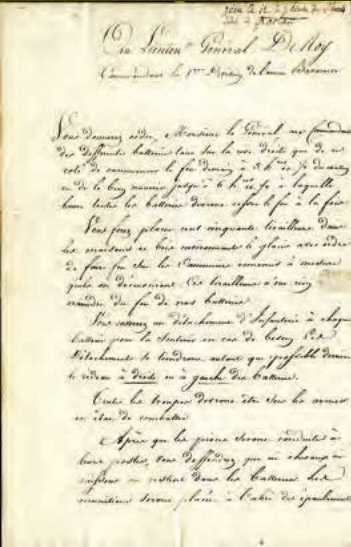 Au Lieutent Général De Roy
Commandant la 1ere Division de l'armée Bavaroise
Vous donnerez ordre, Monsieur le Général aux Commandans
des differentes batteries tant sur la rive droite que de ce
coté de commencer le feu demain à 5 h
et de le bien nourrir jusqu'à 6 h à laquelle
heure toutes les batteries devront cesser le feu à la fois
Vous ferez placer cent cinquante tirailleurs dans
les maisons et bois environnants le glacis avec ordre
de faire feu sur les Canonniers ennemis à mesure
qu'ils se découvriront. Ces tirailleurs n'ont rien
craindre du feu de nos batteries.
Vous enverrez un détachement d'Infanterie à chaque
batterie pour la soutenir en cas de besoin. Ces
Détachements se tiendront autant que possible derrière
le rideau à droite et à gauche des batteries.
Toutes les troupes devront être sous les armes
et être de combattre
Après que les pièces seront conduites à
leurs postes, vous deffendrez que ni chevaux ni
caissons ne restent dans les batteries. Les
munitions seront placées à l'abri des épaulements